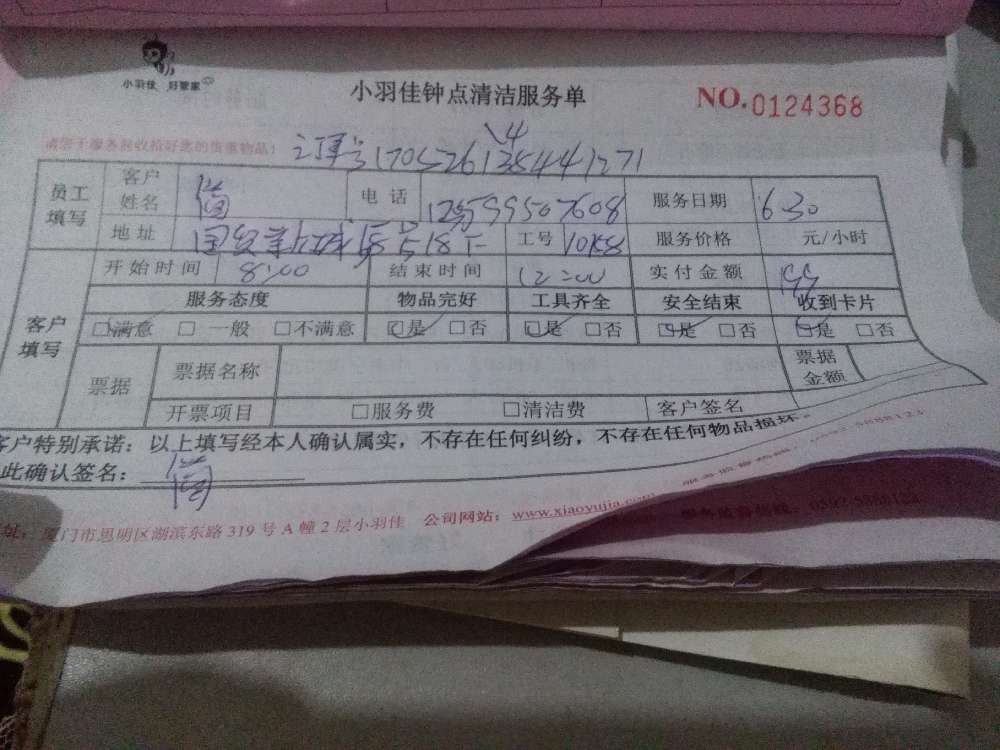 小羽佳 好管家
小羽佳钟点清洁服务单
NO.0124368
请您于服务前收拾好您的贵重物品!
订单号
员工填写 客户姓名 简 电话 服务日期 6 30
地址 工号 服务价格 元/小时
客户填写 开始时间 8:00 结束时间 12:00 实付金额
服务态度 物品完好 工具齐全 安全结束 收到卡片
□满意 □一般 □不满意 □是 □否 □是 □否 □是 □否 □是 □否
票据 票据名称 票据金额
开票项目 □服务费 □清洁费 客户签名
客户特别承诺:以上填写经本人确认属实,不存在任何纠纷,不存在任何物品损坏。
此确认签名: 简
址:厦门市思明区湖滨东路319号A幢2层小羽佳 公司网站:www.xiaoyujia.com